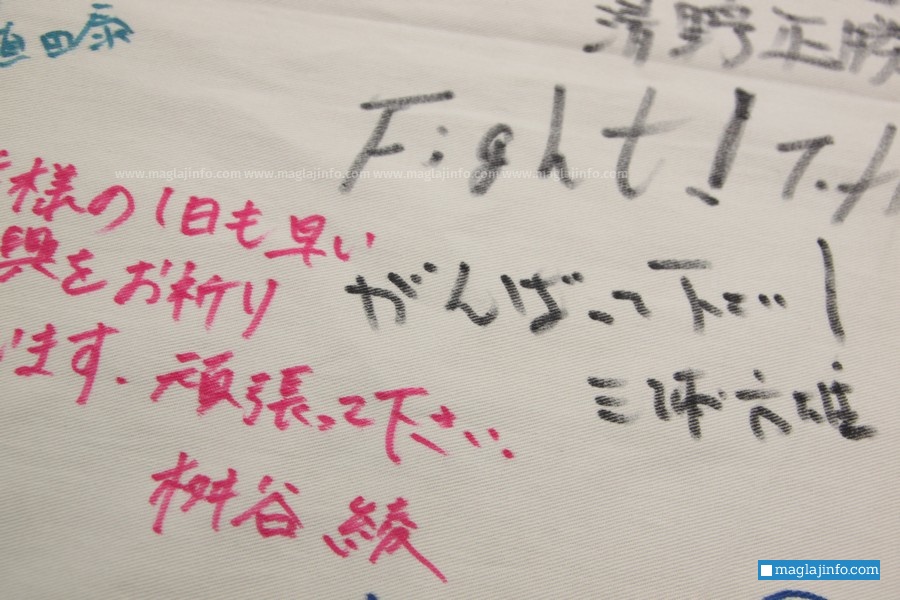 植田康
清野正勝
Fight! T.H
様の1日も早い
興をお祈り
います。頑張って下さい。
桝谷 綾
がんばって下さい!
www.maglajinfo.com www.maglajinfo.com www.maglajinfo.com www.maglajinfo.com
maglajinfo.com